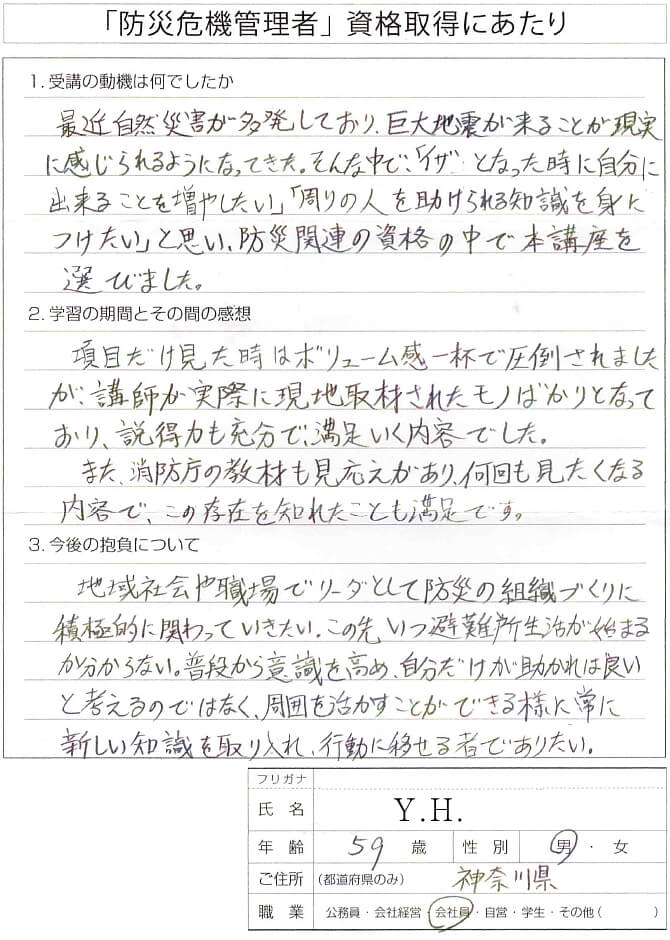 「防災危機管理者」資格取得にあたり
1. 受講の動機は何でしたか
最近自然災害が多発しており、巨大地震が来ることが現実
に感じられるようになってきた。そんな中で、「イザ となった時に自分に
出来ることを増やしたい」「周りの人を助けられる知識を身に
つけたい」と思い、防災関連の資格の中で本講座を
選びました。
2. 学習の期間とその間の感想
項目だけ見た時はボリューム感一杯で圧倒されました
が、講師が実際に現地取材されたモノばかりとなって
おり、説得力も充分で、満足いく内容でした。
また、消防庁の教材も見応えがあり、何回も見たくなる
内容で、この存在を知れたことも満足です。
3. 今後の抱負について
地域社会や職場でリーダとして防災の組織づくりに
積極的に関わっていきたい。この先いつ避難所生活が始まる
か分からない。普段から意識を高め、自分だけが助かれば良い
と考えるのではなく、周囲を活かすことができる様に常に
新しい知識を取り入れ、行動に移せる者でありたい。
フリガナ
氏名 Y.H.
年齢 59 歳 性別 男・女
ご住所 (都道府県のみ) 神奈川県
職業 公務員・会社経営・会社員・自営・学生・その他( )